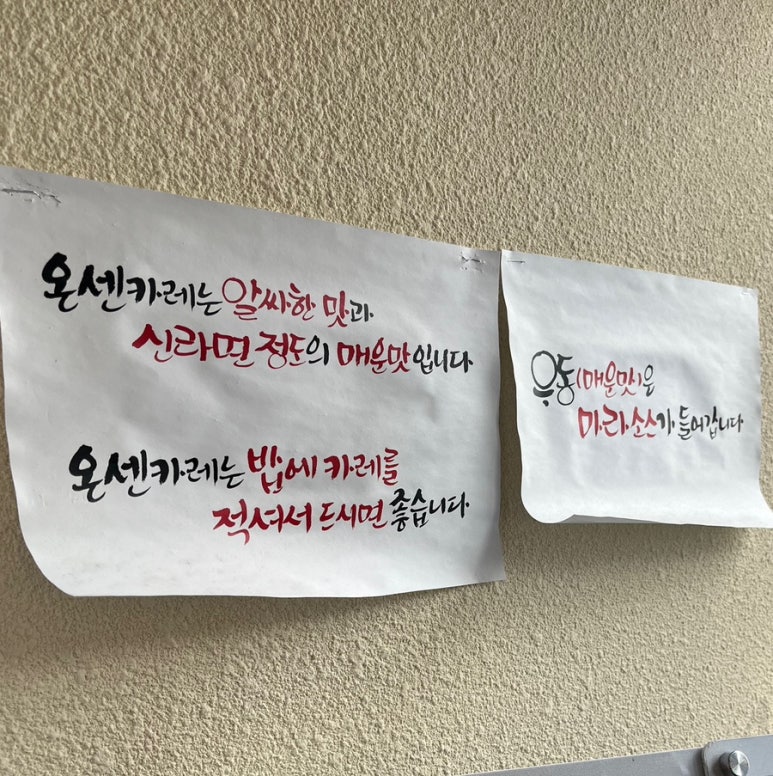 온센카레는 알싸한 맛과
신라면 정도의 매운맛입니다
온센카레는 밥에 카레를
적셔서 드시면 좋습니다.
우동(매운맛)은
마라소스가 들어갑니다